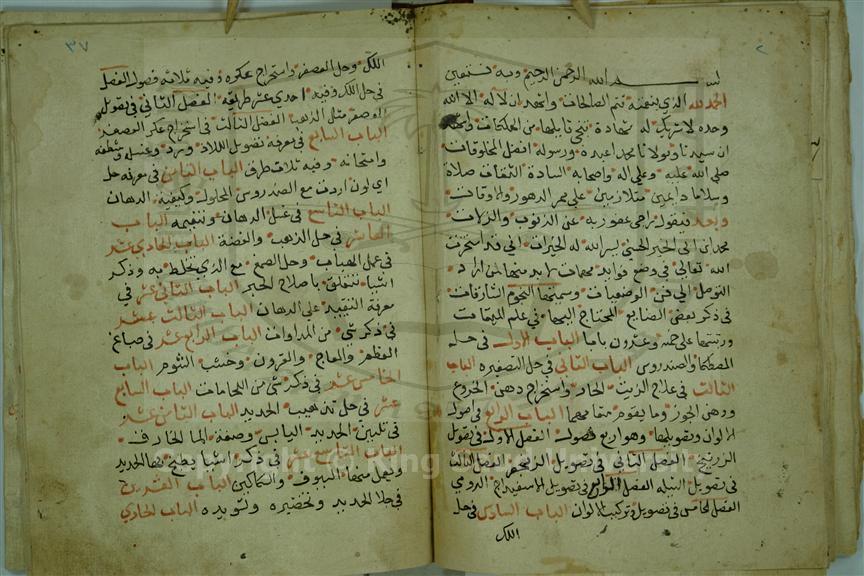 بسم الله الرحمن الرحيم وبه نستعين
الحمد لله الذي بنعمته تتم الصالحات واشهد ان لا اله الا الله
وحده لا شريك له شهادة تنجي قايلها من الهلكات واشهد
ان سيدنا ومولانا محمد اعبده ورسوله افضل المخلوقات
صلى الله عليه وعلى اله واصحابه السادة الثقات صلاة
وسلاما دايمين متلازمين على ممر الدهور والاوقات
وبعد فيقول راجي عفو ربه عن الذنوب والزلات
محمد ابن ابي الخير الحسني يسر الله له الخيرات اني قد استخرت
الله تعالى في وضع فوايد مهمات لا بد منها لمن اراد
التوصل الى فن الوضعيات وسميتها النجوم الشارقات
في ذكر بعض الصنايع المحتاج اليها في علم الميقات
ورتبتها على خمسة وعشرون بابا الباب الاول في حل
المصطكا والسندروس الباب الثاني في حل التصفيره الباب
الثالث في علاج الزيت الحار واستخراج دهن الخروع
ودهن الجوز وما يقوم مقامهما الباب الرابع في اصول
الالوان وتصويلها وهو اربع فصول الفصل الاول في تصويل
الزرنيخ الفصل الثاني في تصويل الزنجفر الفصل الثالث
في تصويل النيله الفصل الرابع في تصويل الاسفيداج الرومي
الفصل الخامس في تصويل وتركيب الالوان الباب السادس في حل
اللك
٣٧
اللك وحل العصفر واستخراج عكره وفيه ثلاثة فصول الفصل
في حل اللك وفيه احدى عشر طريقة الفصل الثاني في تصويل
العصفر مثل الذهب الفصل الثالث في استخراج عكر العصفر
الباب السابع في معرفة تصويل اللازورد وغسله
وامتحانه وفيه ثلاث طرق الباب الثامن في معرفة حل
اي لون اردت مع الصندروس المحلول وكيفية الدهان
الباب التاسع في غسل الدهان وتنقيمه الباب
العاشر في حل الذهب والفضة الباب الحادي عشر
في عمل الهباب وحل الصمغ مع الذي يخلط به وذكر
اشيا تتعلق باصلاح الحبر الباب الثاني عشر في
معرفة التقييد على الدهان الباب الثالث عشر
في ذكر شي من المداوات الباب الرابع عشر في صباغ
العظم والعاج والقرون وخشب الشوم الباب
الخامس عشر في ذكر شي من اللحامات الباب السابع
عشر في حل تذهيب الحديد الباب الثامن عشر
في تليين الحديد اليابس وصفة الما الخارق
الباب التاسع عشر في ذكر اشيا يصبغ بها الحديد
ويعمل منها السيوف والسكاكين الباب العشرين
في جلا الحديد وتخضيره وتسويده الباب الحادي
Copyright © King Saud University